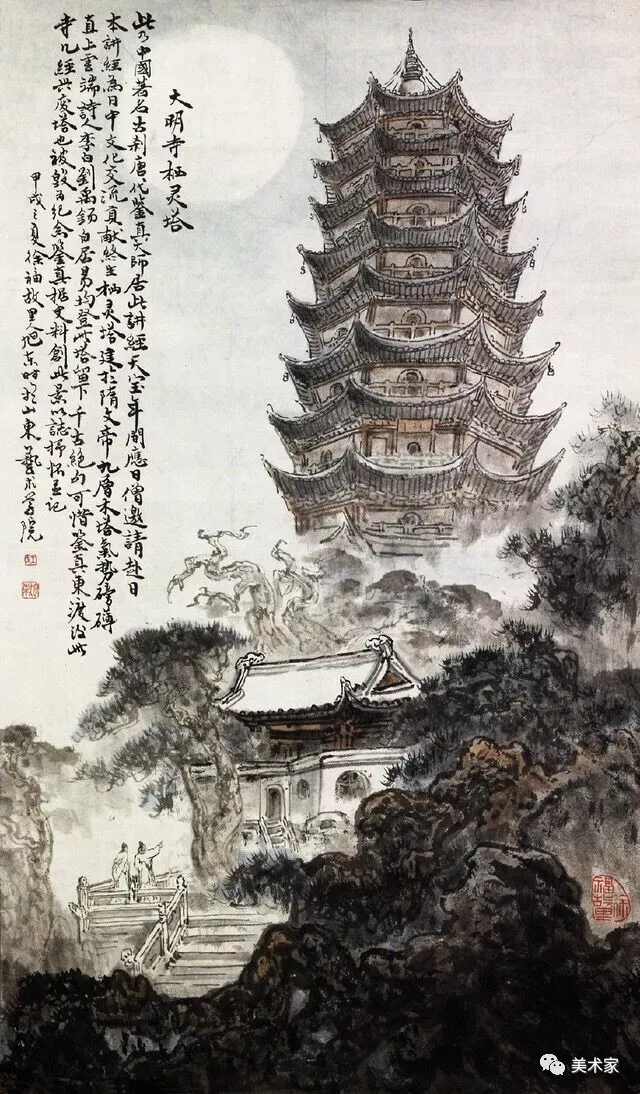 大明寺栖灵塔
此乃中國著名古刹唐代鉴真大師居此讲经天宝年间應日僧邀請赴日
本讲经為日中文化交流貢献終生栖灵塔建於隋文帝九層木塔氣势磅礴
直上雲端詩人李白刘禹锡白居易均登此塔留下千古绝句可惜鉴真東渡后此
寺几经兴废塔也被毁为纪念鉴真据史料創此景以誌抒怀并记
甲戌之夏徐福故里人东时於山東藝术学院
美术家